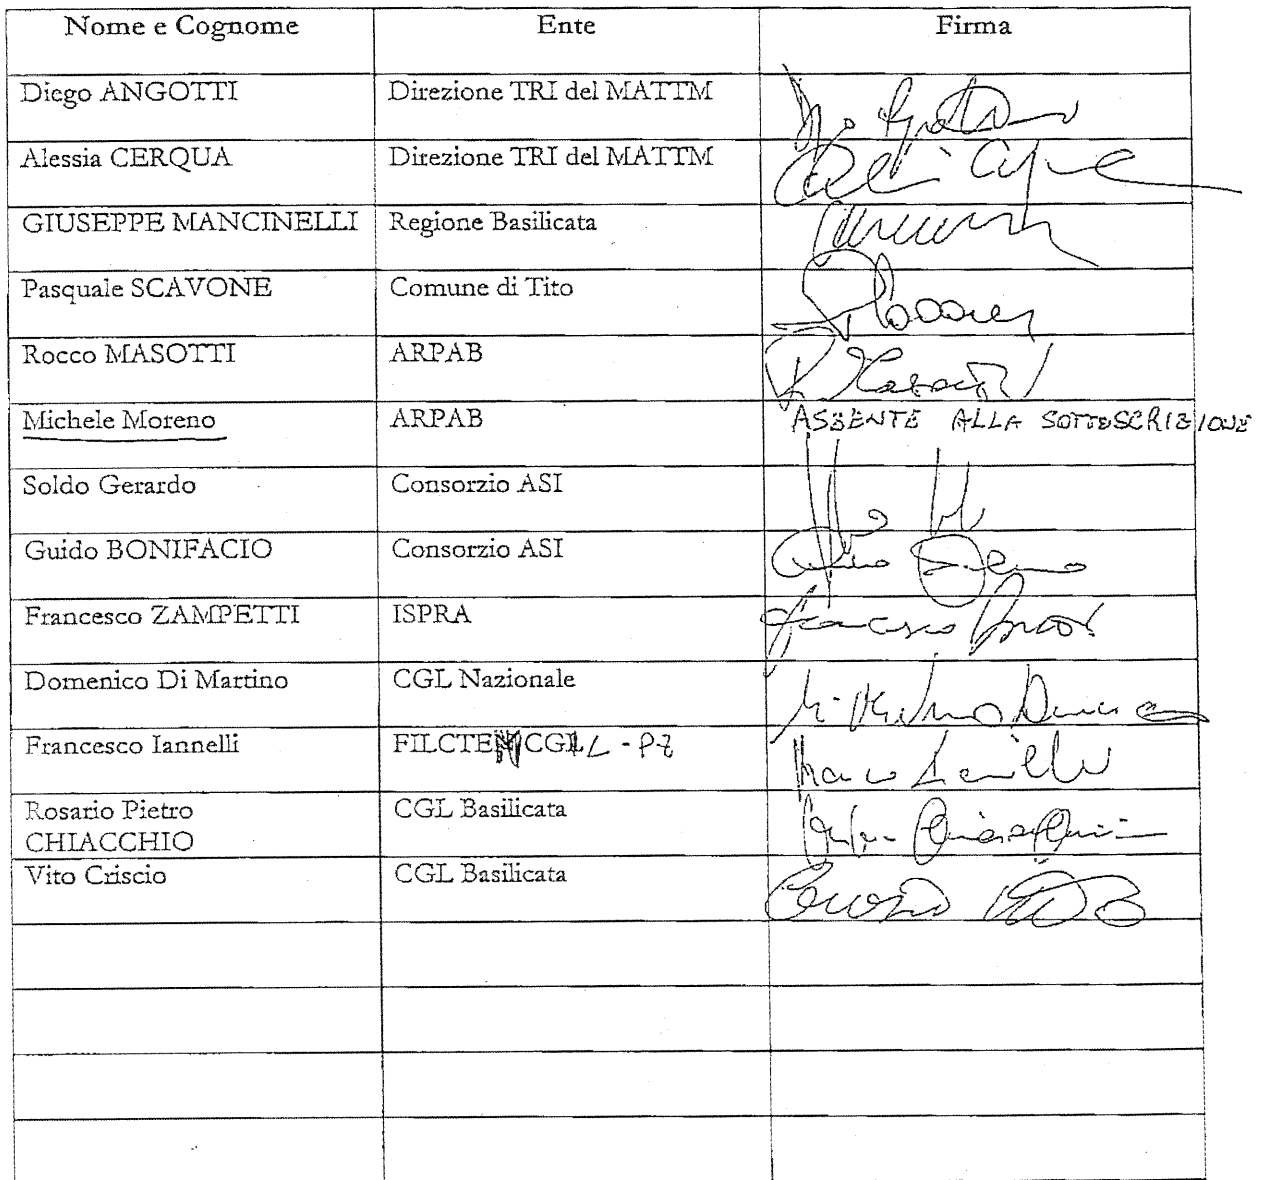 Nome e Cognome Ente Firma
Diego ANGOTTI Direzione TRI del MATTM
Alessia CERQUA Direzione TRI del MATTM
GIUSEPPE MANCINELLI Regione Basilicata
Pasquale SCAVONE Comune di Tito
Rocco MASOTTI ARPAB
Michele Moreno ARPAB ASSENTE ALLA SOTTOSCRIZIONE
Soldo Gerardo Consorzio ASI
Guido BONIFACIO Consorzio ASI
Francesco ZAMPETTI ISPRA
Domenico Di Martino CGL Nazionale
Francesco Iannelli FILCTEM CGIL - PZ
Rosario Pietro CGL Basilicata
CHIACCHIO
Vito Criscio CGL Basilicata